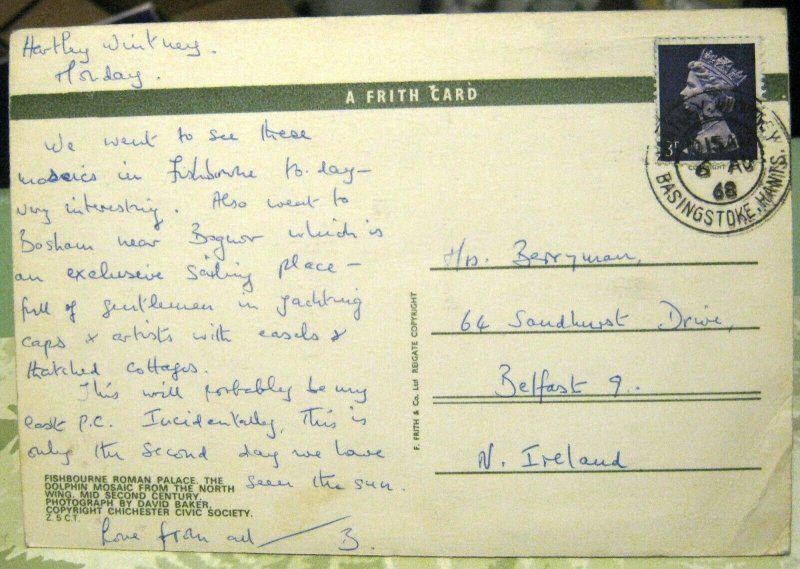 Hartley Wintney.
Monday.
A FRITH CARD
We went to see these
mosaics in Fishbourne to-day—
very interesting. Also went to
Bosham near Bognor which is
an exclusive sailing place—
full of gentlemen in yachting
caps & artists with easels &
thatched cottages.
This will probably be my
last P.C. Incidentally, this is
only the second day we have
seen the sun.
Love from all
B.
FISHBOURNE ROMAN PALACE. THE
DOLPHIN MOSAIC FROM THE NORTH
WING. MID SECOND CENTURY.
PHOTOGRAPH BY DAVID BAKER.
COPYRIGHT CHICHESTER CIVIC SOCIETY.
Z.5 C.T.
F. FRITH & Co. Ltd REIGATE COPYRIGHT
3D
6 AU
68
BASINGSTOKE, HANTS.
Mrs. Berryman,
64 Sandhurst Drive,
Belfast 9.
N. Ireland